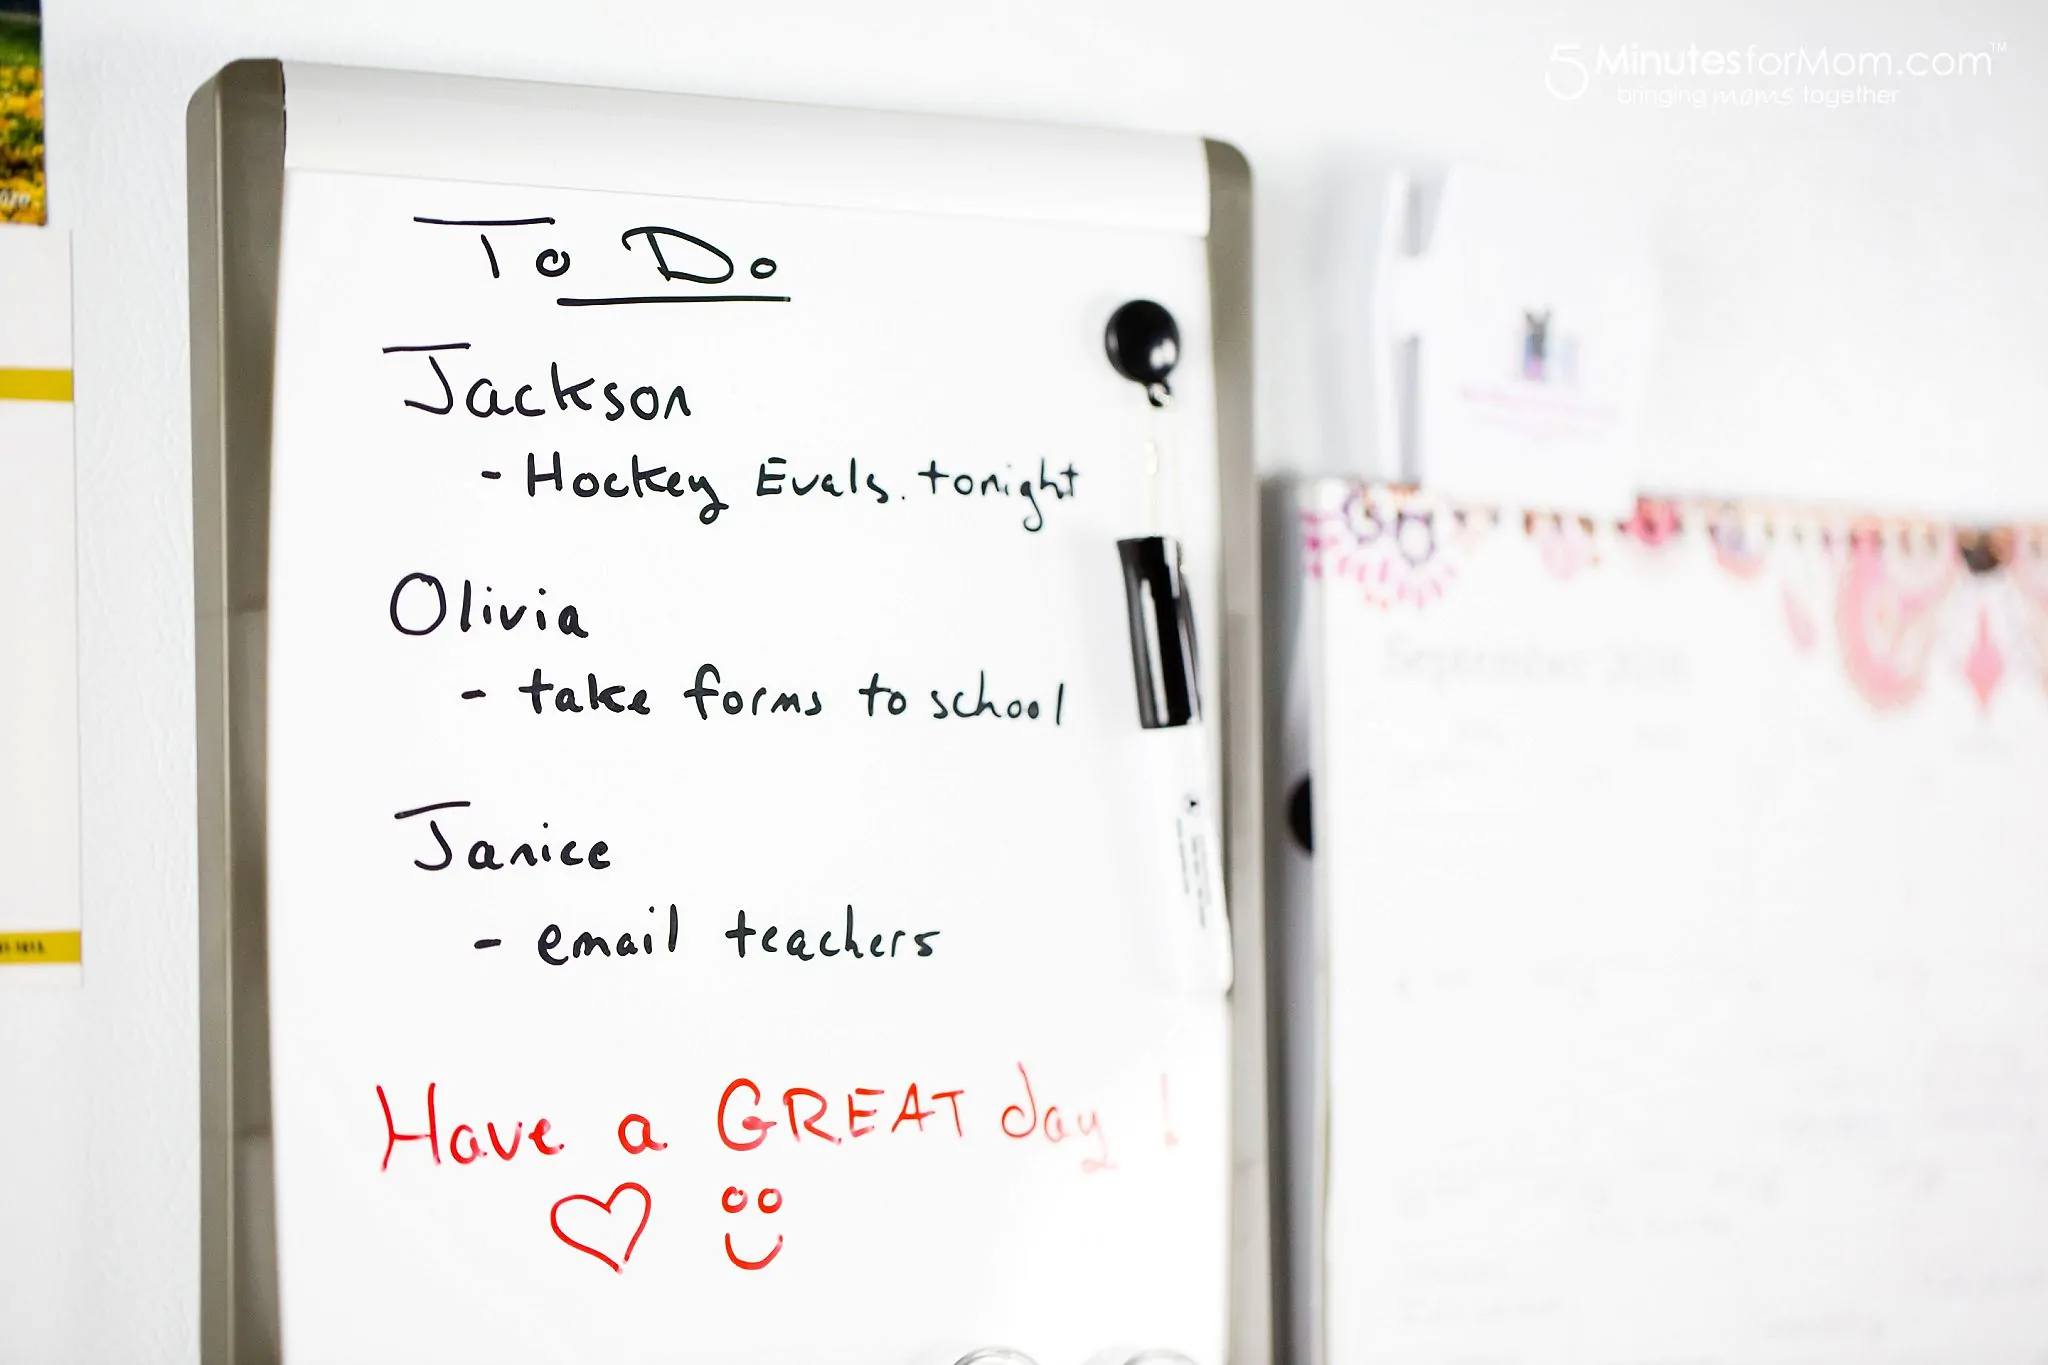 5 MinutesforMom.com™
bringing moms together
To Do
Jackson
- Hockey Evals. tonight
Olivia
- take forms to school
Janice
- email teachers
Have a GREAT day!
September